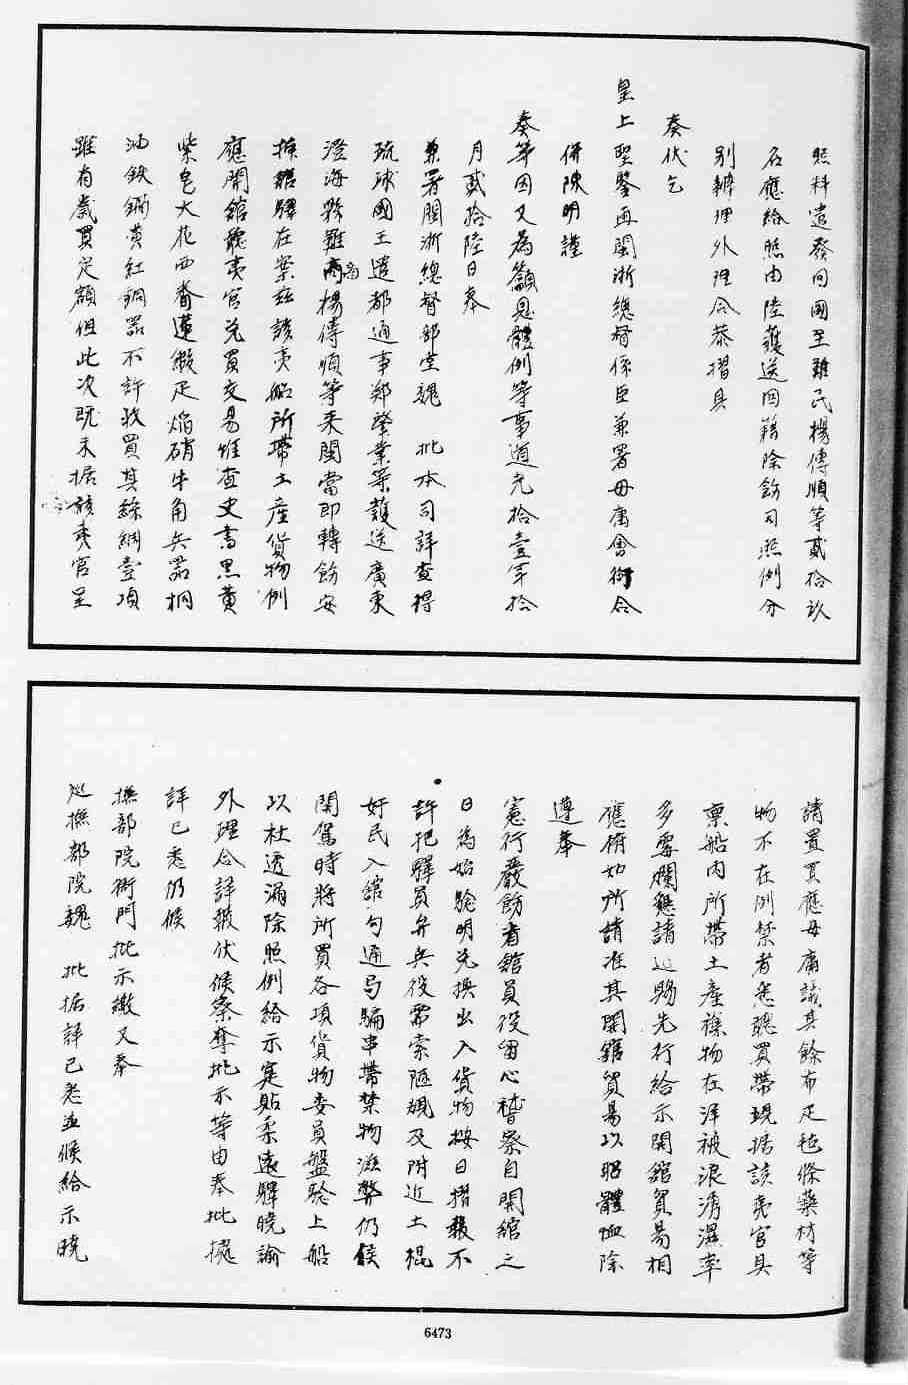 照料遣發回國至難民楊傳順等貳拾玖
名應給照由陸護送回籍除飭司照例分
別辦理外理合恭摺具
奏伏乞
皇上聖鑒再閩浙總督係臣兼署毋庸會銜合
併陳明謹
奏等因又為籲恩體例等事道光拾壹年拾
月貳拾陸日奉
兼署閩浙總督部堂魏 批本司詳查得
琉球國王遣都通事鄭擎業等護送廣東
澄海縣難商楊傳順等來閩當即轉飭安
挿館驛在案茲該夷船所帶土產貨物例
應開館聽夷官兌買交易惟查史書黑黃
紫皂大花西番蓮緞疋焰硝牛角兵器桐
油鉄鍋黃紅銅器不許收買其絲綢壹項
雖有歲買定額但此次既未据該夷官呈
請置買應毋庸議其餘布疋毡條藥材等
物不在例禁者悉聽買帶現据該夷官具
稟船內所帶土產襍物在洋被浪潮濕率
多霉爛懇請迅賜先行給示開館貿易相
應俯如所請准其開館貿易以昭體恤除
遵奉
憲行嚴飭看館員役留心稽察自開館之
日為始驗明兌換出入貨物按日摺報不
許把驛員弁兵役需索陋規及附近土棍
奸民入館勾通局騙串帶禁物滋弊仍俟
開駕時將所買各項貨物委員盤驗上船
以杜透漏除照例給示寔貼柔遠驛曉諭
外理合詳報伏候察奪批示等由奉批據
詳已悉仍候
撫部院衙門批示繳又奉
廵撫部院魏 批据詳已悉並候給示曉
6473